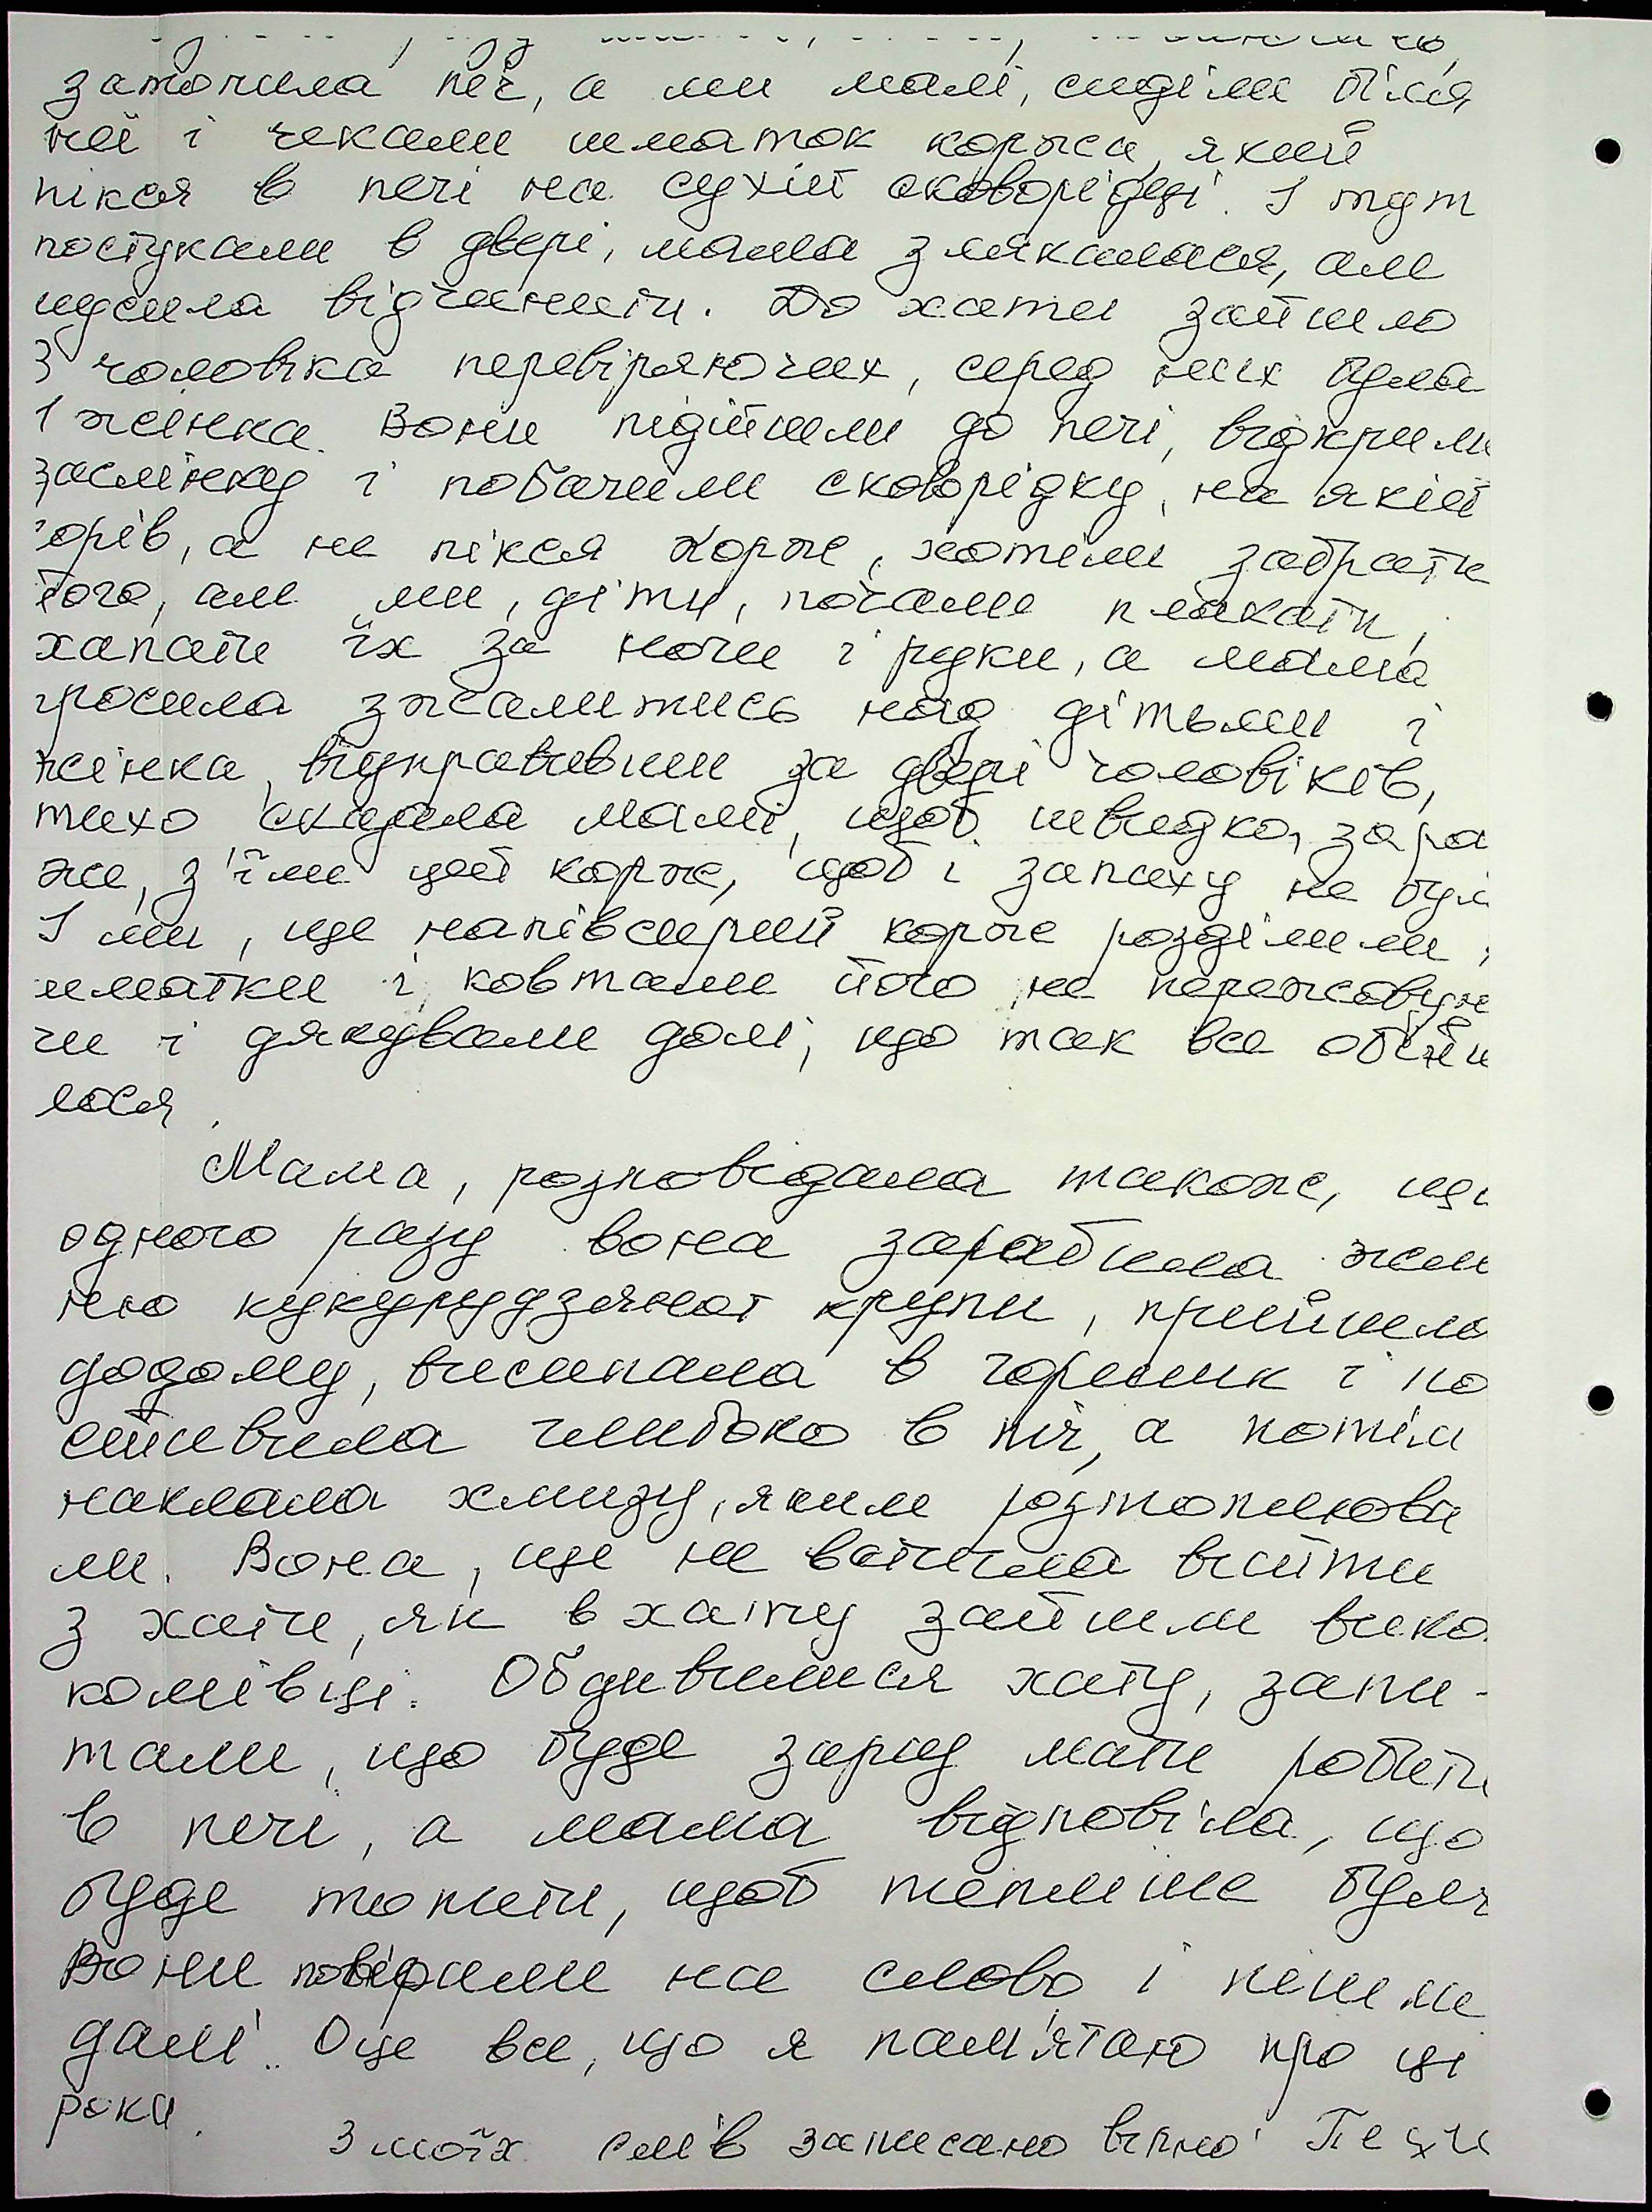 затопила піч, а ми малі, сиділи біля
неї і чекали шматок коржа, який
пікся в печі на сухій сковорідці. І тут
постукали в двері, мама злякалася, але
пішла відчинити. До хати зайшло
3 чоловіка перевіряючих, серед них була
1 жінка. Вони підійшли до печі, відкрили
заслінку і побачили сковорідку, на якій
горів, а не пікся корж, хотіли забрати
його, але ми, діти, почали плакати,
хапати їх за ноги і руки, а мама
просила зжалитись над дітьми і
жінка, відправивши за двері чоловіків,
тихо сказала мамі, щоб швидко, зара
же, з'їли цей корж, щоб і запаху не бул
І ми, ще напівсирий корж розділили
шматки і ковтали його не пережовую
чи і дякували долі, що так все обій
лося.
Мама, розповідала також, що
одного разу вона заробила жме
ню кукурудзяної крупи, прийшла
додому, висипала в горщик і по
ставила глибоко в піч, а потім
наклала хмизу, яким розтоплюва
ли. Вона, ще не встигла вийти
з хати, як в хату зайшли вико
комівці. Обдивилися хату, запи-
тали, що буде зараз мати робити
в печі, а мама відповіла, що
буде топити, щоб тепліше було
Вони повірили на слово і пішли
далі. Оце все, що я пам'ятаю про ці
роки.
З моїх слів записано вірно